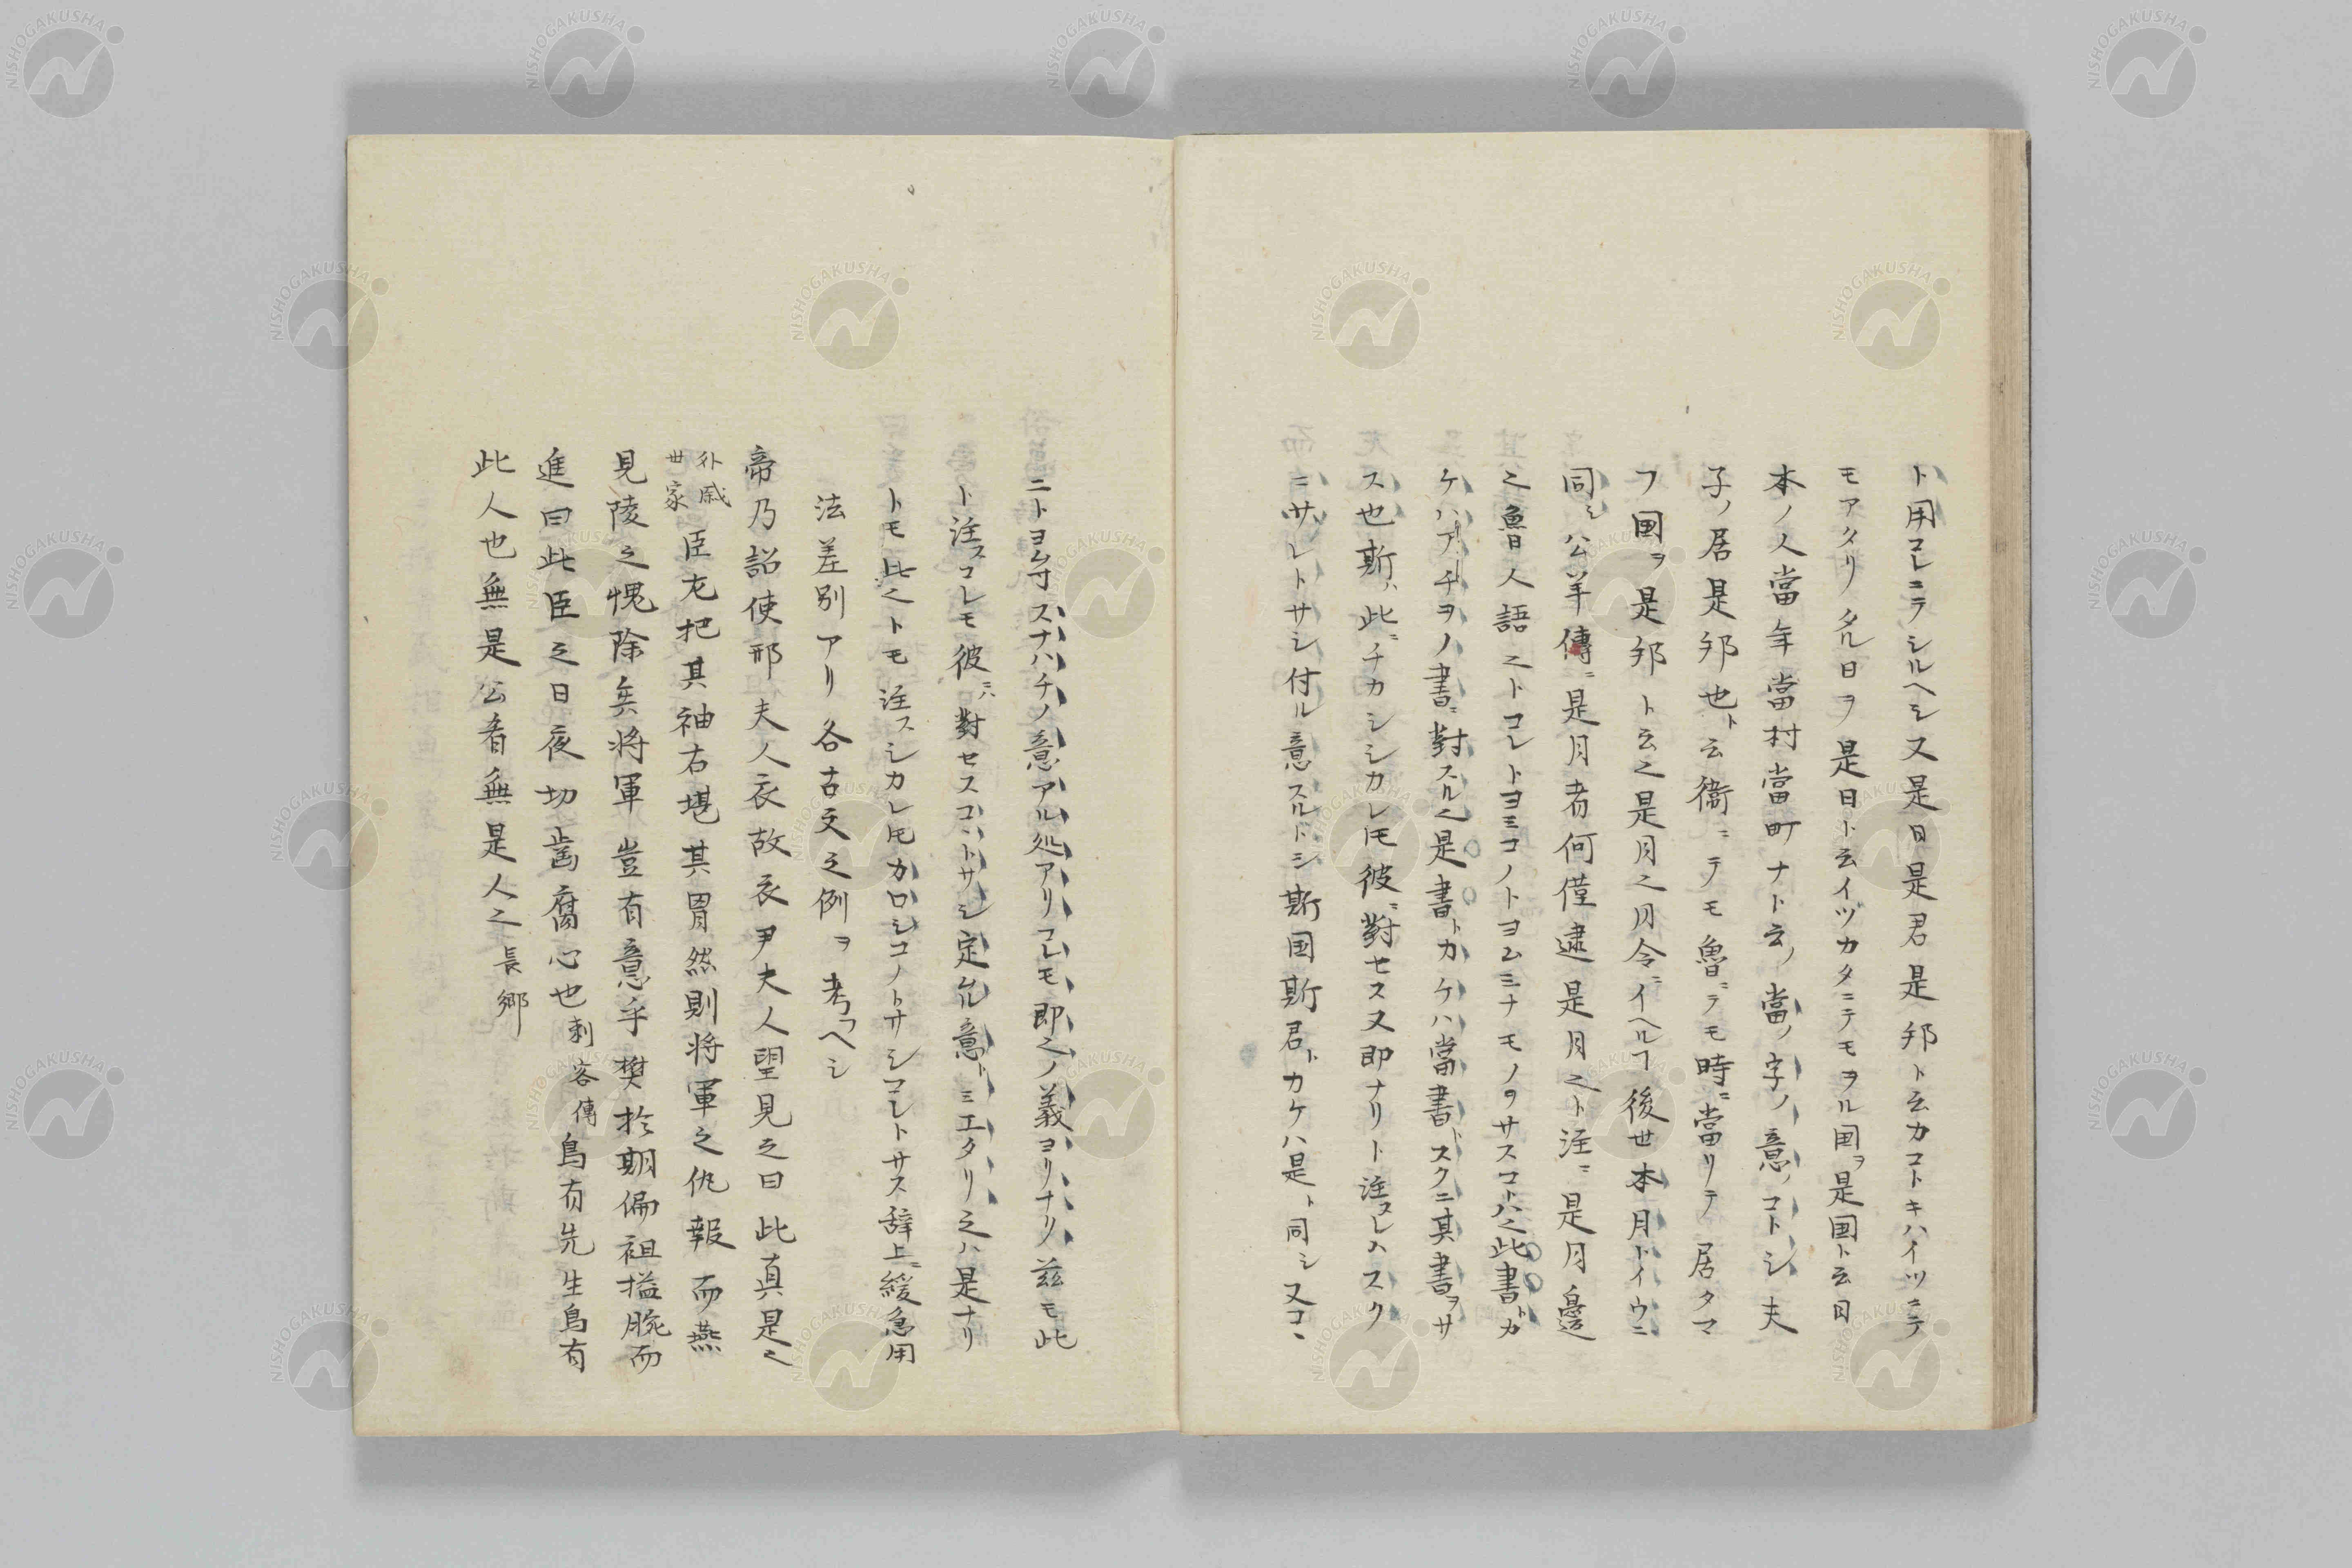 ト用コレニテシルヘシ又是日是君是邦ト云カコトキハイツニテ
モアタリタル日ヲ是日ト云イヅカタニテモヲル国ヲ是国ト云日
本ノ人當年當村當町ナト云ノ當ノ字ノ意ノコトシ夫
子ノ居是邦也ト云衞ニテモ魯ニテモ時ニ當リテ居タマ
フ国ヲ是邦ト云之是月之月令ニイヘルフ後世本月トイウニ
同シ公羊傳ニ是月者何僅逮是月之ト注ニ是月邊
之魯人語之トコレトヨミコノトヨムミナモノヲサスコトハ之此書トカ
ケハアチヲノ書ニ對スル之是書トカケハ當書トスクニ其書ヲサ
ス也斯ハ此ニチカシシカレ𪜈彼ニ對セス又即ナリト注スレハスク
ニサレトサシ付ル意スルトシ斯国斯君トカケハ是ト同シ又コヽ
ニトヨム寸スナハチノ意アル処アリコレモ即之ノ義ヨリナリ茲モ此
ト注スコレモ彼ニハ對セスコヽトサシ定ムル意トミエタリ之ハ是ナリ
トモ此之トモ注スシカレ𪜈カロシコノトサシコレトサス辞上ニ緩急用
法差別アリ各古文之例ヲ考フヘシ
帝乃詔使邢夫人衣故衣尹夫人望見之曰此真是之
外戚
世家
臣左把其袖右堪其胃然則将軍之仇報而燕
見陵之愧除矣将軍豈有意乎樊於期偏袒搤腕而
進曰此臣之日夜切齒腐心也刺客傳烏有先生烏有
此人也無是公者無是人之長郷